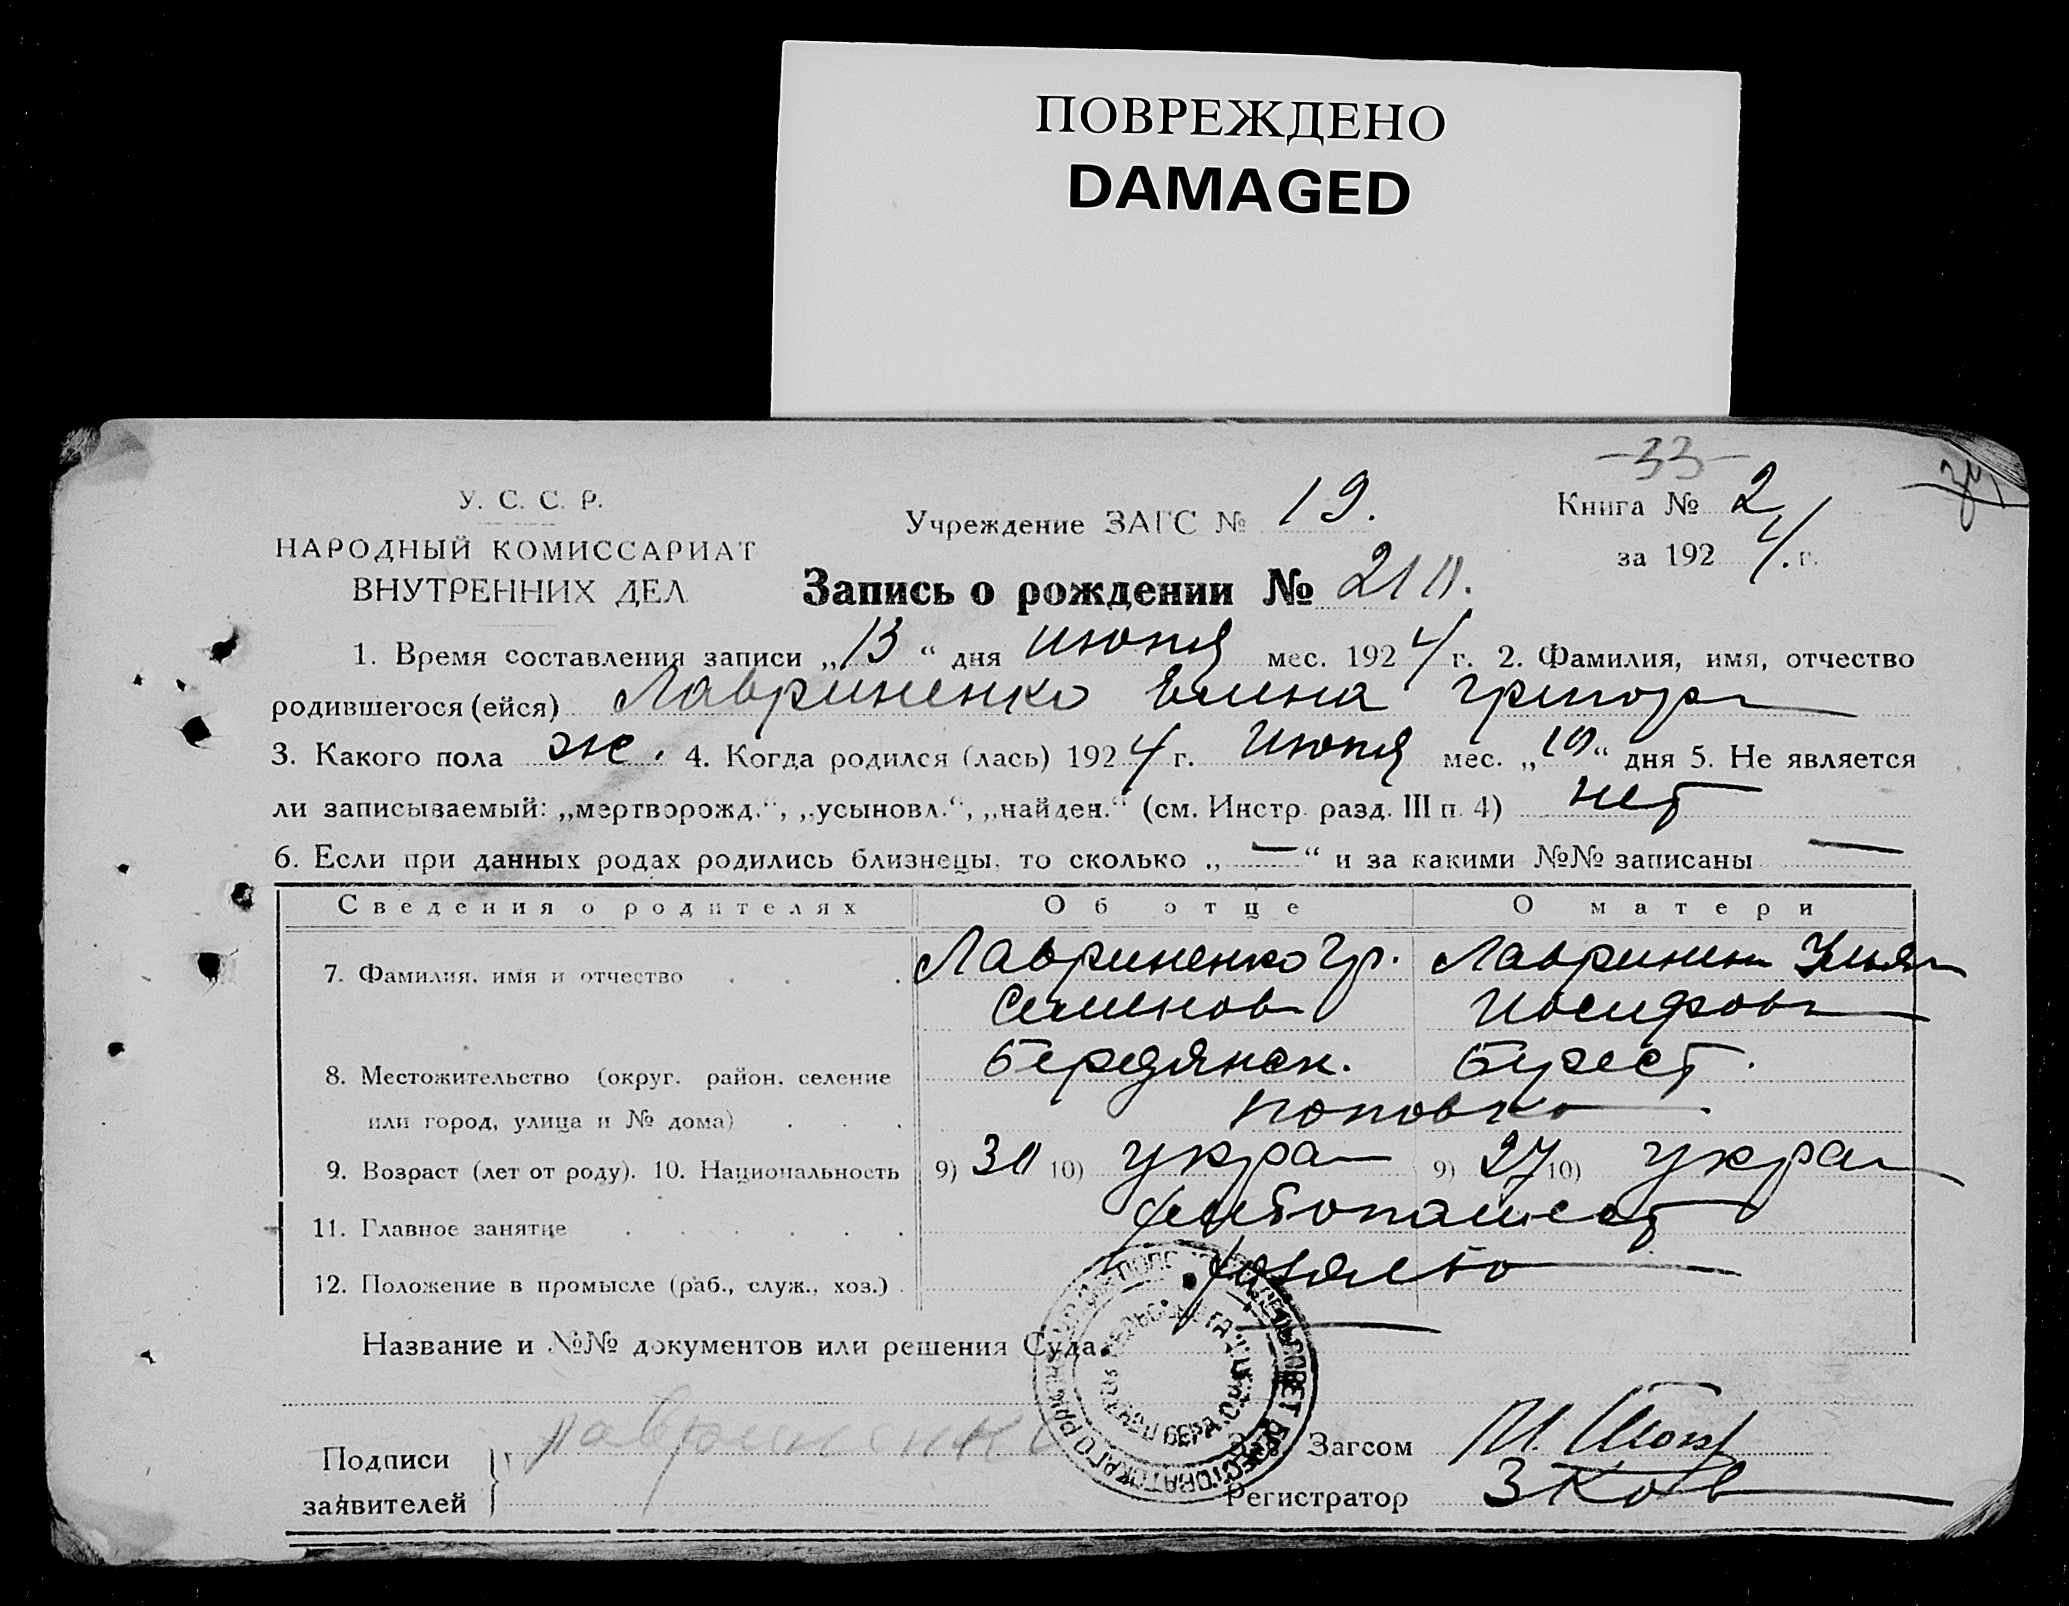 ПОВРЕЖДЕНО
DAMAGED
-33-
У. С. С. Р.
НАРОДНЫЙ КОМИССАРИАТ
ВНУТРЕННИХ ДЕЛ
Учреждение ЗАГС № 19.
Книга № 2
за 1924 г.
Запись о рождении №
1. Время составления записи „13“ дня июня мес. 1924 г. 2. Фамилия, имя, отчество
родившегося (ейся) Лавриненко Елена Григор
3. Какого пола ж. 4. Когда родился (лась) 1924 г. Июня мес. „10“ дня 5. Не является
ли записываемый: „мертворожд.“, „усыновл.“, „найден.“ (см. Инстр. разд. III п. 4) нет
6. Если при данных родах родились близнецы, то сколько „—“ и за какими №№ записаны —
Сведения о родителях Об отце О матери
7. Фамилия, имя и отчество . . . Лавриненко Гр. Лавринен Ульян
Семенов Иосифовн
8. Местожительство (округ, район, селение Бердянск. Берест.
или город, улица и № дома) . . . Поповка
9. Возраст (лет от роду). 10. Национальность 9) 30 10) укра 9) 27 10) укра
11. Главное занятие . . . . . . хлебопашест
12. Положение в промысле (раб., служ., хоз.) .
Название и №№ документов или решения Суда.
Подписи
заявителей
Лавриненко
Зав. Загсом
Регистратор